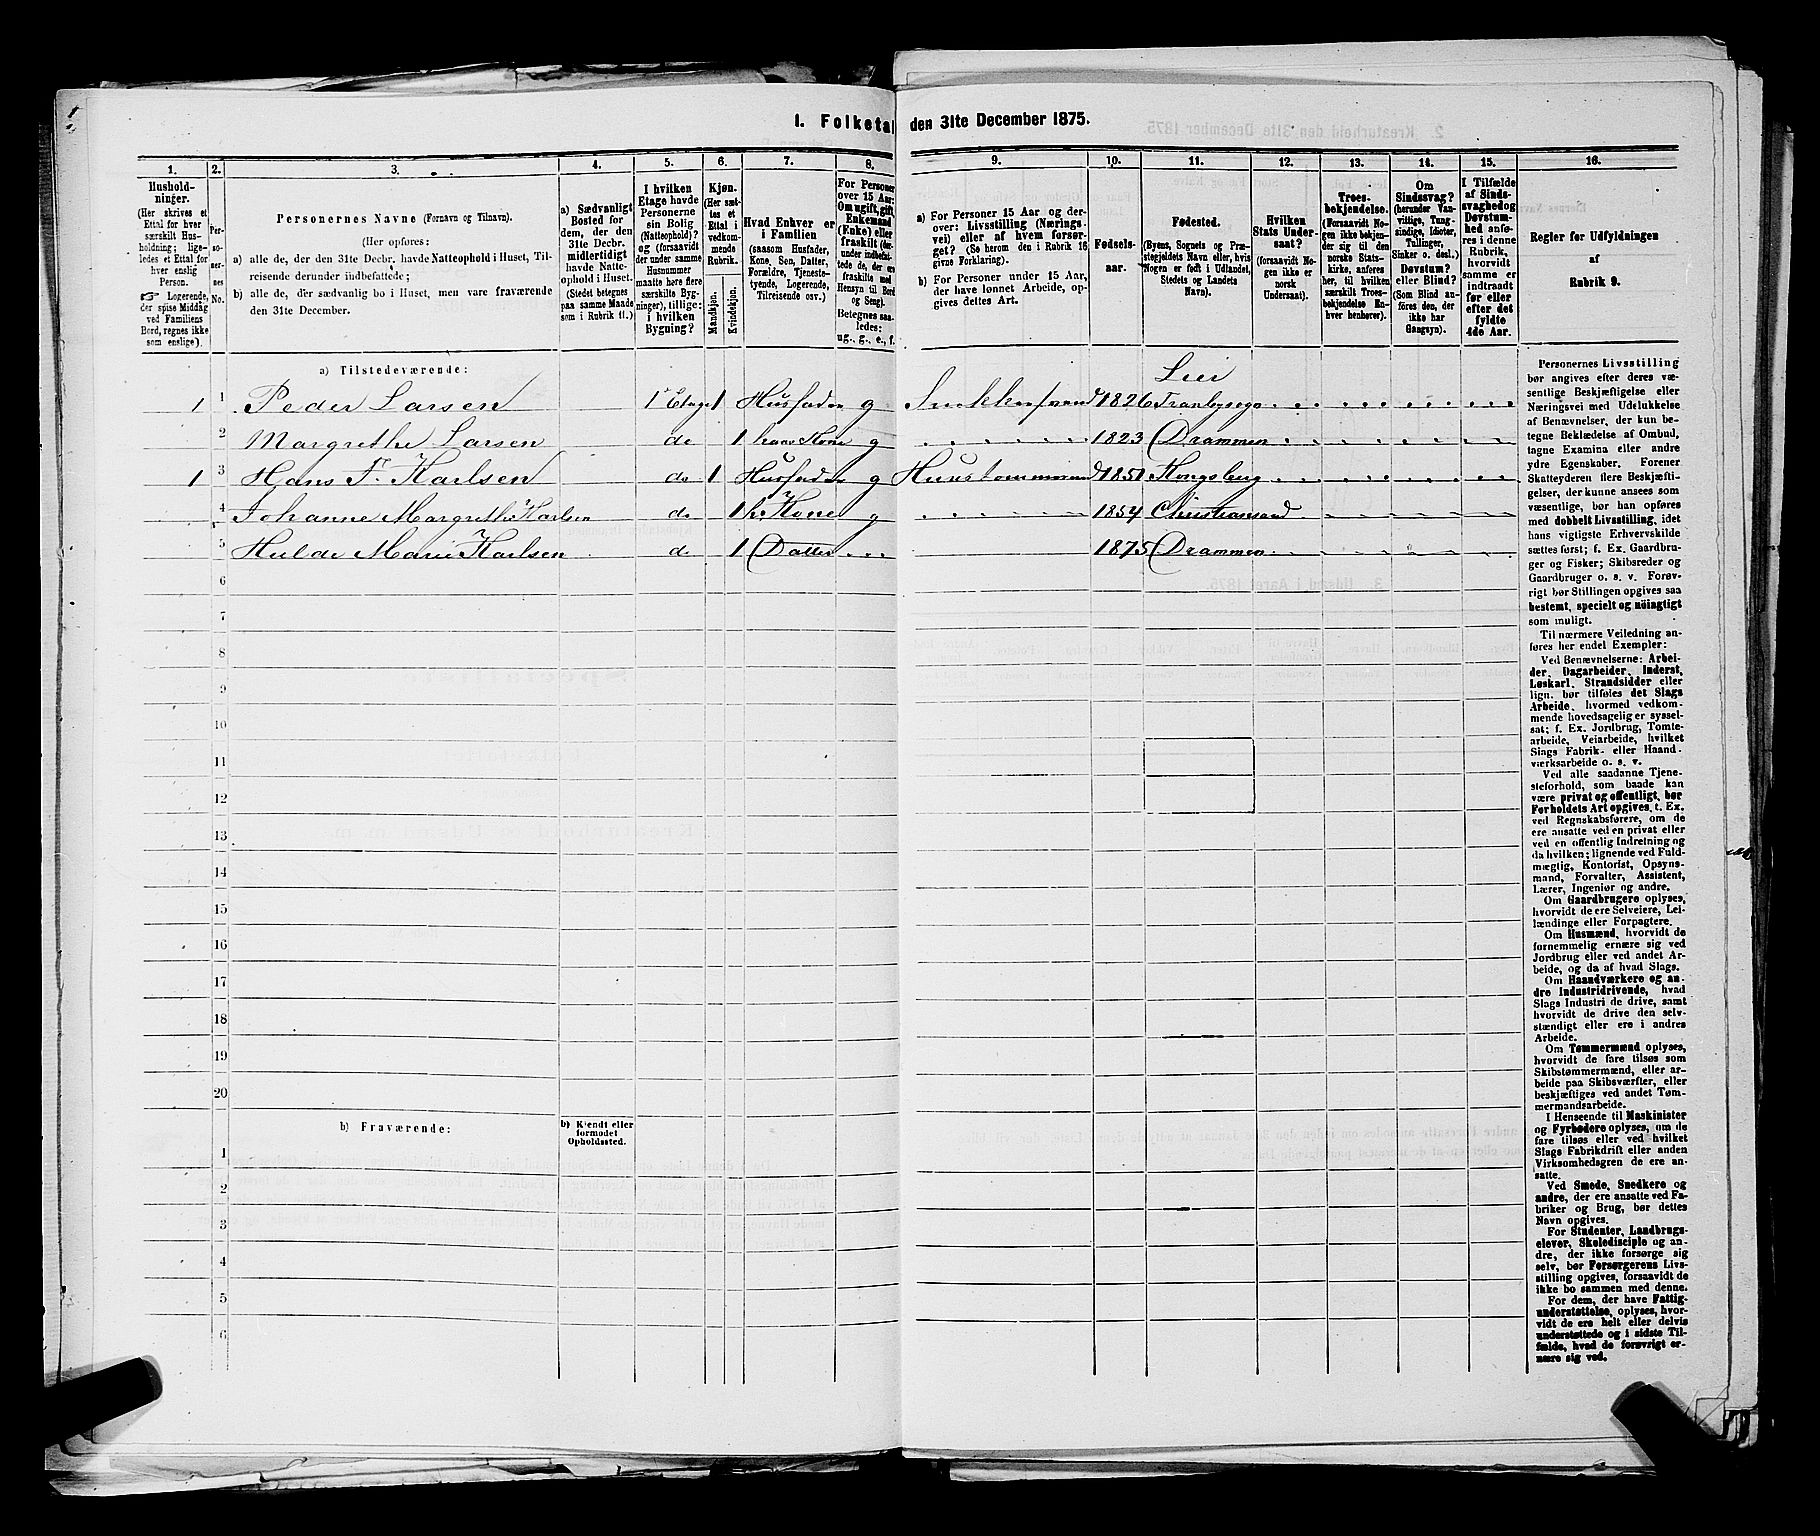 I. Folketal den 31te December 1875.
1. 2. 3. 4. 5. 6. 7. 8. 9. 10. 11. 12. 13. 14. 15. 16.
Husholdninger.
(Her skrives et
Ettal for hver
særskilt Husholdning;
ligeledes et Ettal for
hver enslig
Person.
Logerende,
der spise Middag
ved Familiens
Bord, regnes ikke
som enslige).
Personernes No.
Personernes Navne (Fornavn og Tilnavn).
(Her opføres:
a) alle de, der den 31te Decbr. havde Natteophold i Huset, Tilreisende derunder indbefattede;
b) alle de, der sædvanlig bo i Huset, men vare fraværende
den 31te December.
a) Sædvanligt
Bosted for
dem, der den
31te Decbr.
midlertidigt
havde Natteophold i Huset.
(Stedet betegnes
paa samme Maade
som i Rubrik 11.)
I hvilken
Etage havde
Personerne
sin Bolig
(Natteophold)?
og (forsaavidt
der under samme
Husnummer
maatte høre flere
særskilte Bygninger), tillige:
i hvilken
Bygning?
Kjøn.
(Her sættes et
Ettal i
vedkommende
Rubrik.
Mandkjøn.
Kvindekjøn.
Hvad Enhver er
i Familien
(saasom Husfader,
Kone, Søn, Datter,
Forældre, Tjenestetyende, Logerende,
Tilreisende osv.)
For Personer
over 15 Aar:
Om ugift, gift,
Enkemand
(Enke) eller
fraskilt
Hensyn til Bord
og Seng).
Betegnes saaledes:
ug., g., e., f.
a) For Personer 15 Aar og derover: Livsstilling (Næringsvei) eller af hvem forsørget? (Se herom den i Rubrik 16
givne Forklaring).
b) For Personer under 15 Aar,
der have lønnet Arbeide, opgives dettes Art.
Fødselsaar.
Fødested.
(Byens, Sognets og Præstegjeldets Navn eller, hvis
Nogen er født i Udlandet,
Stedets og Landets
Navn).
Hvilken
Stats Undersaat?
(forsaavidt Nogen ikke er
norsk
Undersaat).
Troesbekjendelse.
(Forsaavidt Nogen ikke bekjender sig til den
norske Statskirke, anføres
her, til hvilken
særskilt Troesbekjendelse Enhver henhører).
Om
Sindssvag?
(herunder Vanvittige, Tungsindige, Idioter,
Tullinger,
Sinker o. desl.)
Døvstum?
eller Blind?
(Som Blind anføres den, der
ikke har
Gangsyn).
I Tilfælde
af Sindssvaghed og
Døvstumhed anføres i denne
Rubrik,
hvorvidt
samme er
indtraadt
før eller
efter det
fyldte
4de Aar.
Regler for Udfyldningen
af
Rubrik 9.
a) Tilstedeværende:
Lier
1 1 Peder Larsen 1 Etage 1 Husfader g 1826 Tranbysogn
2 Margrethe Larsen do 1 hans Kone g 1823 Drammen
1 3 Hans F. Karlsen do 1 Husfader g Huustømmermand 1851 Kongsberg
4 Johanne Margrethe Karlsen do 1 h. Kone g 1854 Christiansand
5 Hulda Marie Karlsen do 1 Datter 1875 Drammen
6
7
8
9
10
11
12
13
14
15
16
17
18
19
20
b) Fraværende:
b) Kjendt eller
formodet
Opholdssted.
1
2
3
4
5
6
Personernes Livsstilling
bør angives efter deres væsentlige Beskjæftigelse eller
Næringsvei med Udelukkelse
af Benævnelser, der kun betegne Beklædelse af Ombud,
tagne Examina eller andre
ydre Egenskaber. Forener
Skatteyderen flere Beskjæftigelser, der kunne ansees som
væsentlige, bør han opføres
med dobbelt Livsstilling, idet
hans vigtigste Erhvervskilde
sættes først; f. Ex. Gaardbruger og Fisker; Skibsreder og
Gaardbruger o. s. v. Forøvrigt bør Stillingen opgives saa
bestemt, specielt og nöiagtigt
som muligt.
Til nærmere Veiledning anføres her endel Exempler:
Ved Benævnelserne: Arbeider, Dagarbeider, Inderst,
Løskarl, Strandsidder eller
lign. bør tilføies det Slags
Arbeide, hvormed vedkommende hovedsagelig er sysselsat; f. Ex. Jordbrug, Tomtearbeide, Veiarbeide, hvilket
Slags Fabrik- eller Haandværksarbeide o. s. v.
Ved alle saadanne Tjenesteforhold, som baade kan
være privat og offentligt, bør
Forholdets Art opgives, t. Ex.
ved Regnskabsførere, om de
ere ansatte ved en privat eller
ved en offentlig Indretning og
da hvilken; lignende ved Fuldmægtig, Kontorist, Opsynsmand, Forvalter, Assistent,
Lærer, Ingeniør og andre.
Om Gaardbrugere oplyses,
hvorvidt de ere Selveiere, Leilændinge eller Forpagtere.
Om Husmænd, hvorvidt de
fornemmelig ernære sig ved
Jordbrug eller ved andet Arbeide, og da af hvad Slags.
Om Haandværkere og andre Industridrivende, hvad
Slags Industri de drive, samt
hvorvidt de drive den selvstændigt eller ere i andres
Arbeide.
Om Tømmermænd oplyses,
hvorvidt de fare tilsøs som
Skibstømmermænd, eller arbeide paa Skibsværfter, eller
beskjæftiges ved andet Tømmermandsarbeide.
I Henseende til Maskinister
og Fyrbødere oplyses, om de
fare tilsøs eller ved hvilket
Slags Fabrikdrift eller anden
Virksomhedsgren de ere ansatte.
Ved Smede, Snedkere og
andre, der ere ansatte ved Fabriker og Brug, bør dettes
Navn opgives.
For Studenter, Landbrugselever, Skoledisciple og andre, der ikke forsørge sig
selv, bør Forsørgerens Livsstilling opgives, forsaavidt de
ikke bo sammen med denne.
For dem, der have Fattigunderstøttelse, oplyses, hvorvidt de ere helt eller delvis
understøttede og i sidste Tilfælde, hvad de forøvrigt ernære sig ved.